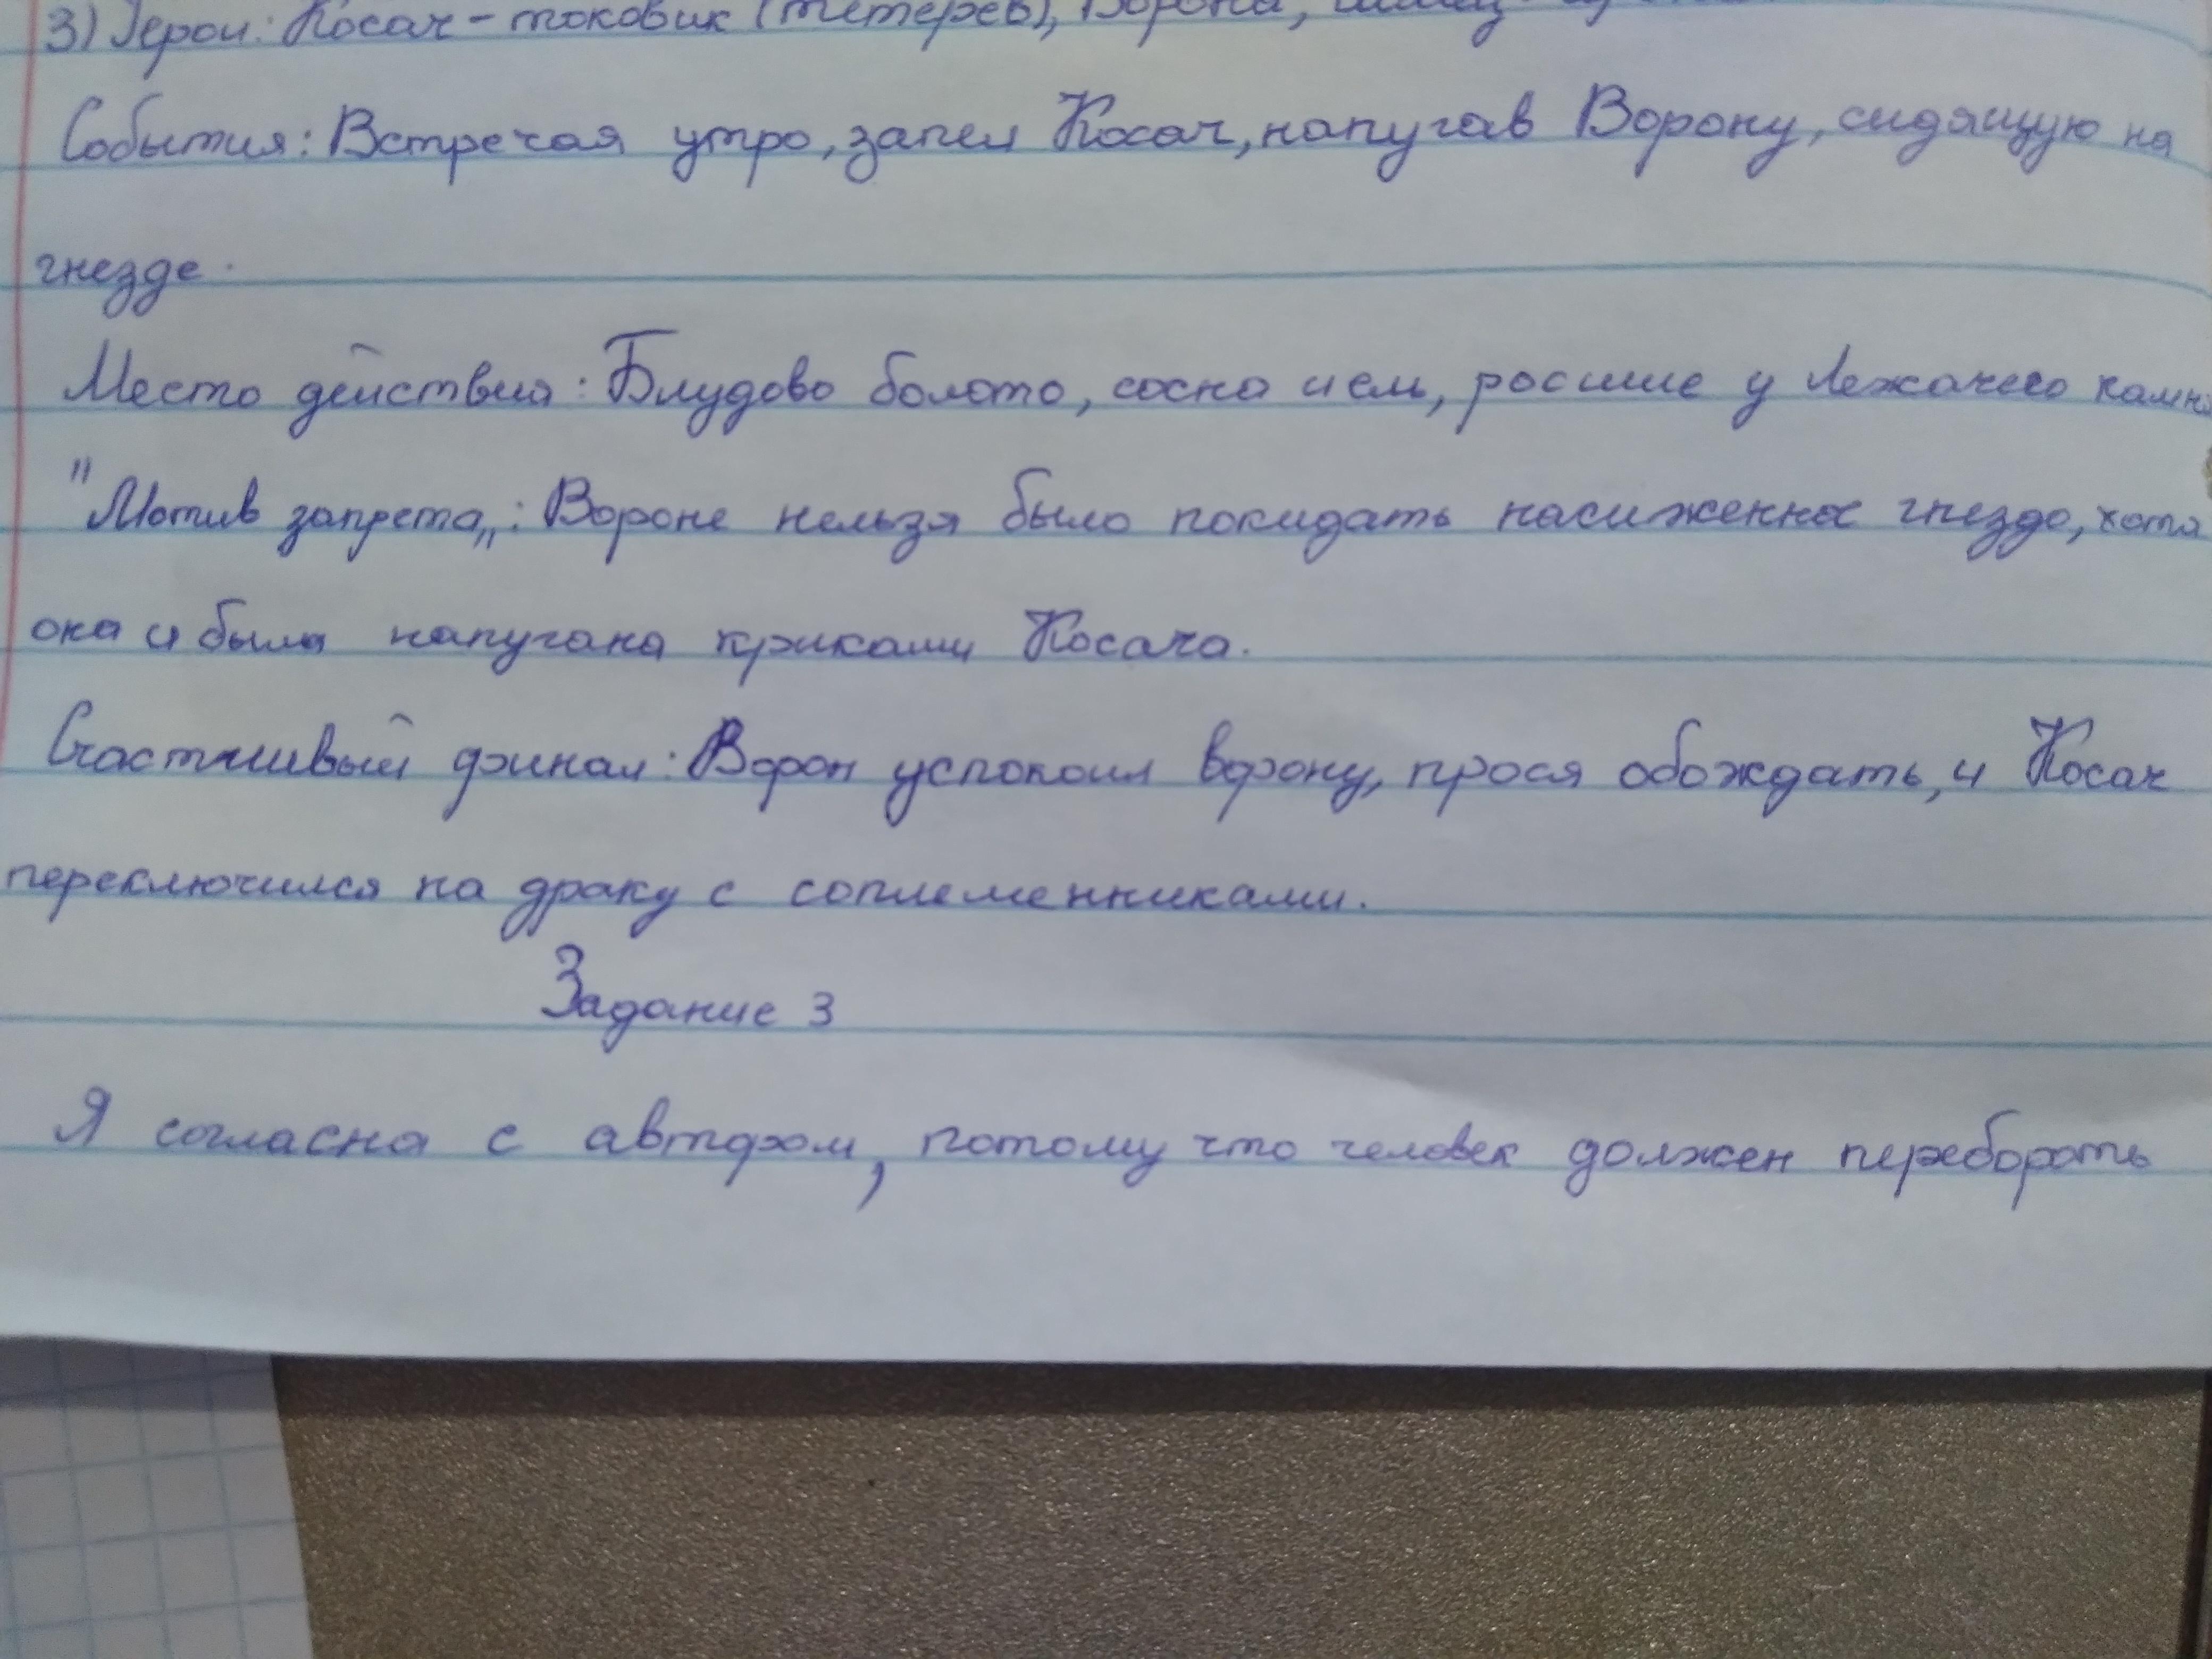 3) Герои: Косач - токовик (тетерев), Ворона,
События: Встречая утро, запел Косач, напугав Ворону, сидящую на
гнезде.
Место действия: Блудово болото, сосна и ель, росшие у Лежачего камня
"Мотив запрета„: Вороне нельзя было покидать насиженное гнездо, хотя
она и была напугана криками Косача.
Счастливый финал: Ворон успокоил ворону, прося обождать, и Косач
переключился на драку с соплеменниками.
Задание 3
Я согласна с автором, потому что человек должен перебороть